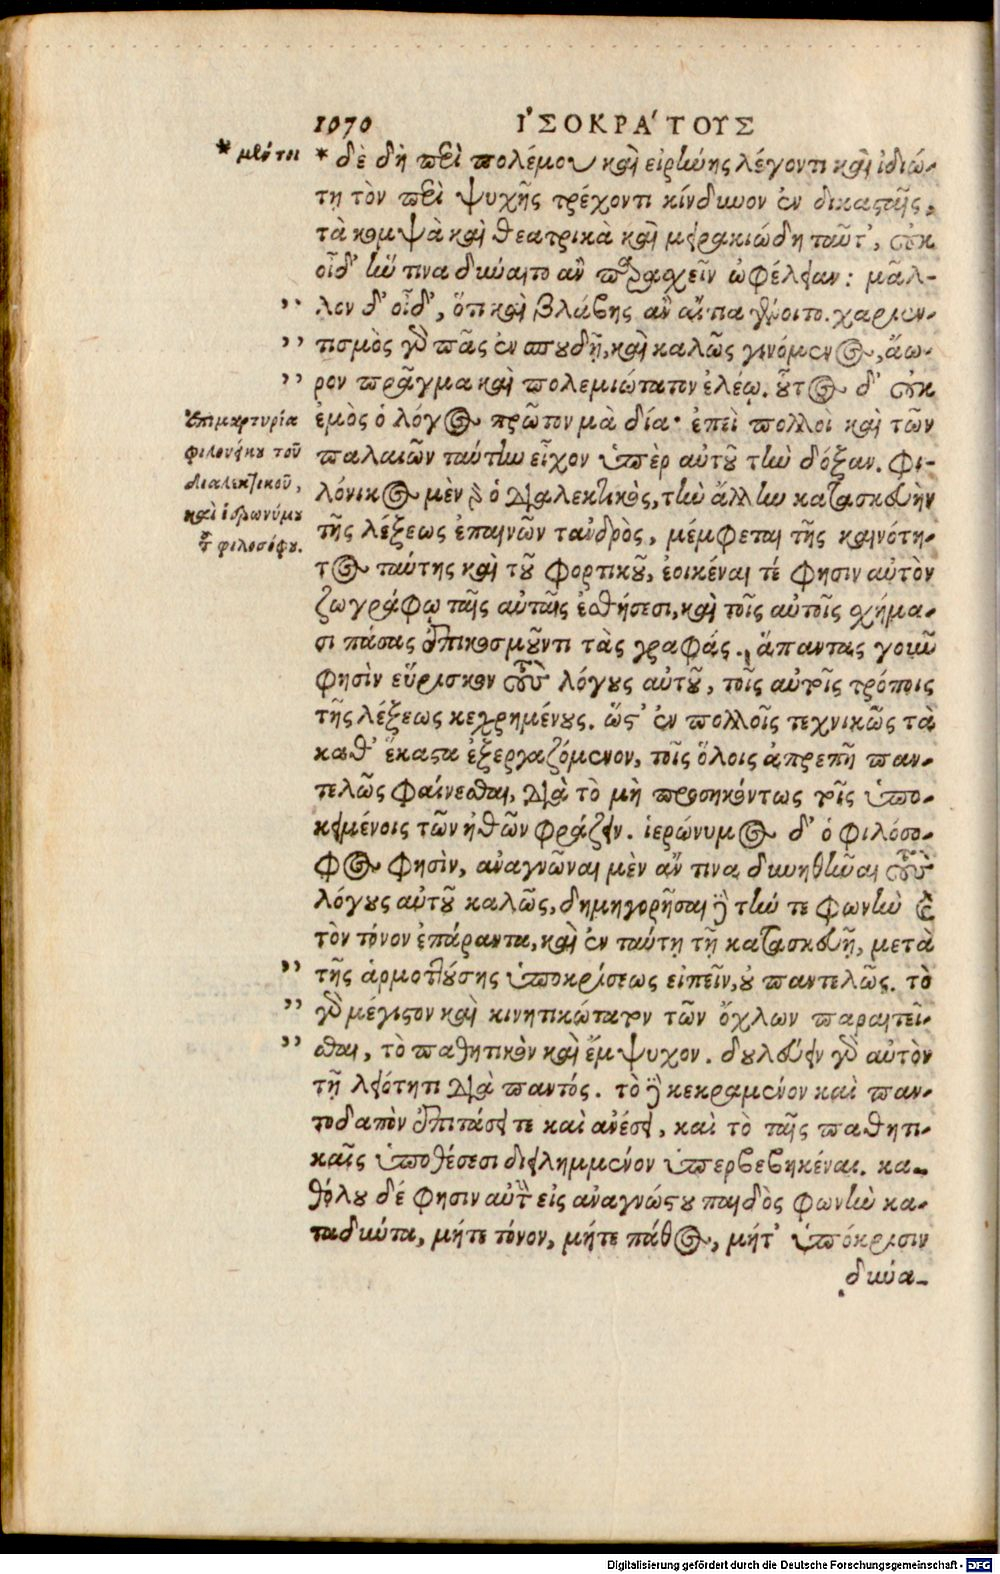 1070 ἸΣΟΚΡΆΤΟΥΣ
* μέν τοι
* δὲ δὴ περὶ πολέμου καὶ εἰρήνης λέγοντι καὶ ἰδιώ-
τῃ τὸν περὶ ψυχῆς τρέχοντι κίνδυνον ἐν δικασταῖς,
τὰ κομψὰ καὶ θεατρικὰ καὶ μειρακιώδη ταῦτ', οὐκ
οἶδ' ἥν τινα δύναιτο ἂν παραχεῖν ὠφέλειαν: μᾶλ-
" λον δ' οἶδ', ὅτι καὶ βλάβης ἂν αἴτια γένοιτο. χαριεν-
" τισμὸς γὰρ πᾶς ἐν σπουδῇ, καὶ καλῶς γινόμενος, ἄω-
" ρον πρᾶγμα καὶ πολεμιώτατον ἐλέῳ. οὗτος δ' οὐκ
ἐμὸς ὁ λόγος πρῶτον μὰ δία· ἐπεὶ πολλοὶ καὶ τῶν
παλαιῶν ταύτην εἶχον ὑπὲρ αὐτοῦ τὴν δόξαν. Φι-
λόνικος μὲν γὰρ ὁ διαλεκτικὸς, τὴν ἄλλην κατασκευὴν
τῆς λέξεως ἐπαινῶν τἀνδρὸς, μέμφεται τῆς καινότη-
τος ταύτης καὶ τοῦ φορτικοῦ, ἐοικέναι τέ φησιν αὐτὸν
ζωγράφῳ ταῖς αὐταῖς ἐσθήσεσι, καὶ τοῖς αὐτοῖς σχήμα-
σι πάσας ἐπικοσμοῦντι τὰς γραφάς. ἅπαντας γοῦν
φησὶν εὕρισκον τοὺς λόγους αὐτοῦ, τοῖς αὐτοῖς τρόποις
τῆς λέξεως κεχρημένους. ὥστ' ἐν πολλοῖς τεχνικῶς τὰ
καθ' ἕκαστα ἐξεργαζόμενον, τοῖς ὅλοις ἀπρεπῆ παν-
τελῶς φαίνεσθαι, διὰ τὸ μὴ προσηκόντως τοῖς ὑπο-
κειμένοις τῶν ἠθῶν φράζειν. ἱερώνυμος δ' ὁ φιλόσο-
φος φησὶν, ἀναγνῶναι μὲν ἄν τινα δυνηθῆναι τοὺς
λόγους αὐτοῦ καλῶς, δημηγορῆσαι δὲ τήν τε φωνὴν καὶ
τὸν τόνον ἐπάραντα, καὶ ἐν ταύτῃ τῇ κατασκευῇ, μετὰ
" τῆς ἁρμοττούσης ὑποκρίσεως εἰπεῖν, οὐ παντελῶς. τὸ
" γὰρ μέγιστον καὶ κινητικώτατον τῶν ὄχλων παραιτεῖ-
" σθαι, τὸ παθητικὸν καὶ ἔμψυχον. δουλεύειν γὰρ αὐτὸν
τῇ λειότητι διὰ παντός. τὸ δὲ κεκραμένον καὶ παν-
τοδαπὸν ἐπιτάσει τε καὶ ἀνέσει, καὶ τὸ ταῖς παθητι-
καῖς ὑποθέσεσι διειλημμένον ὑπερβεβηκέναι. κα-
θόλου δέ φησιν αὐτὸν εἰς ἀναγνώστου παιδὸς φωνὴν κα-
ταδύντα, μήτε τόνον, μήτε πάθος, μήτ' ὑπόκρισιν
δύνα-
Ἐπιμαρτυρία
φιλονείκου τοῦ
διαλεκτικοῦ,
καὶ ἱερωνύμου
τοῦ φιλοσόφου.
Digitalisierung gefördert durch die Deutsche Forschungsgemeinschaft - DFG